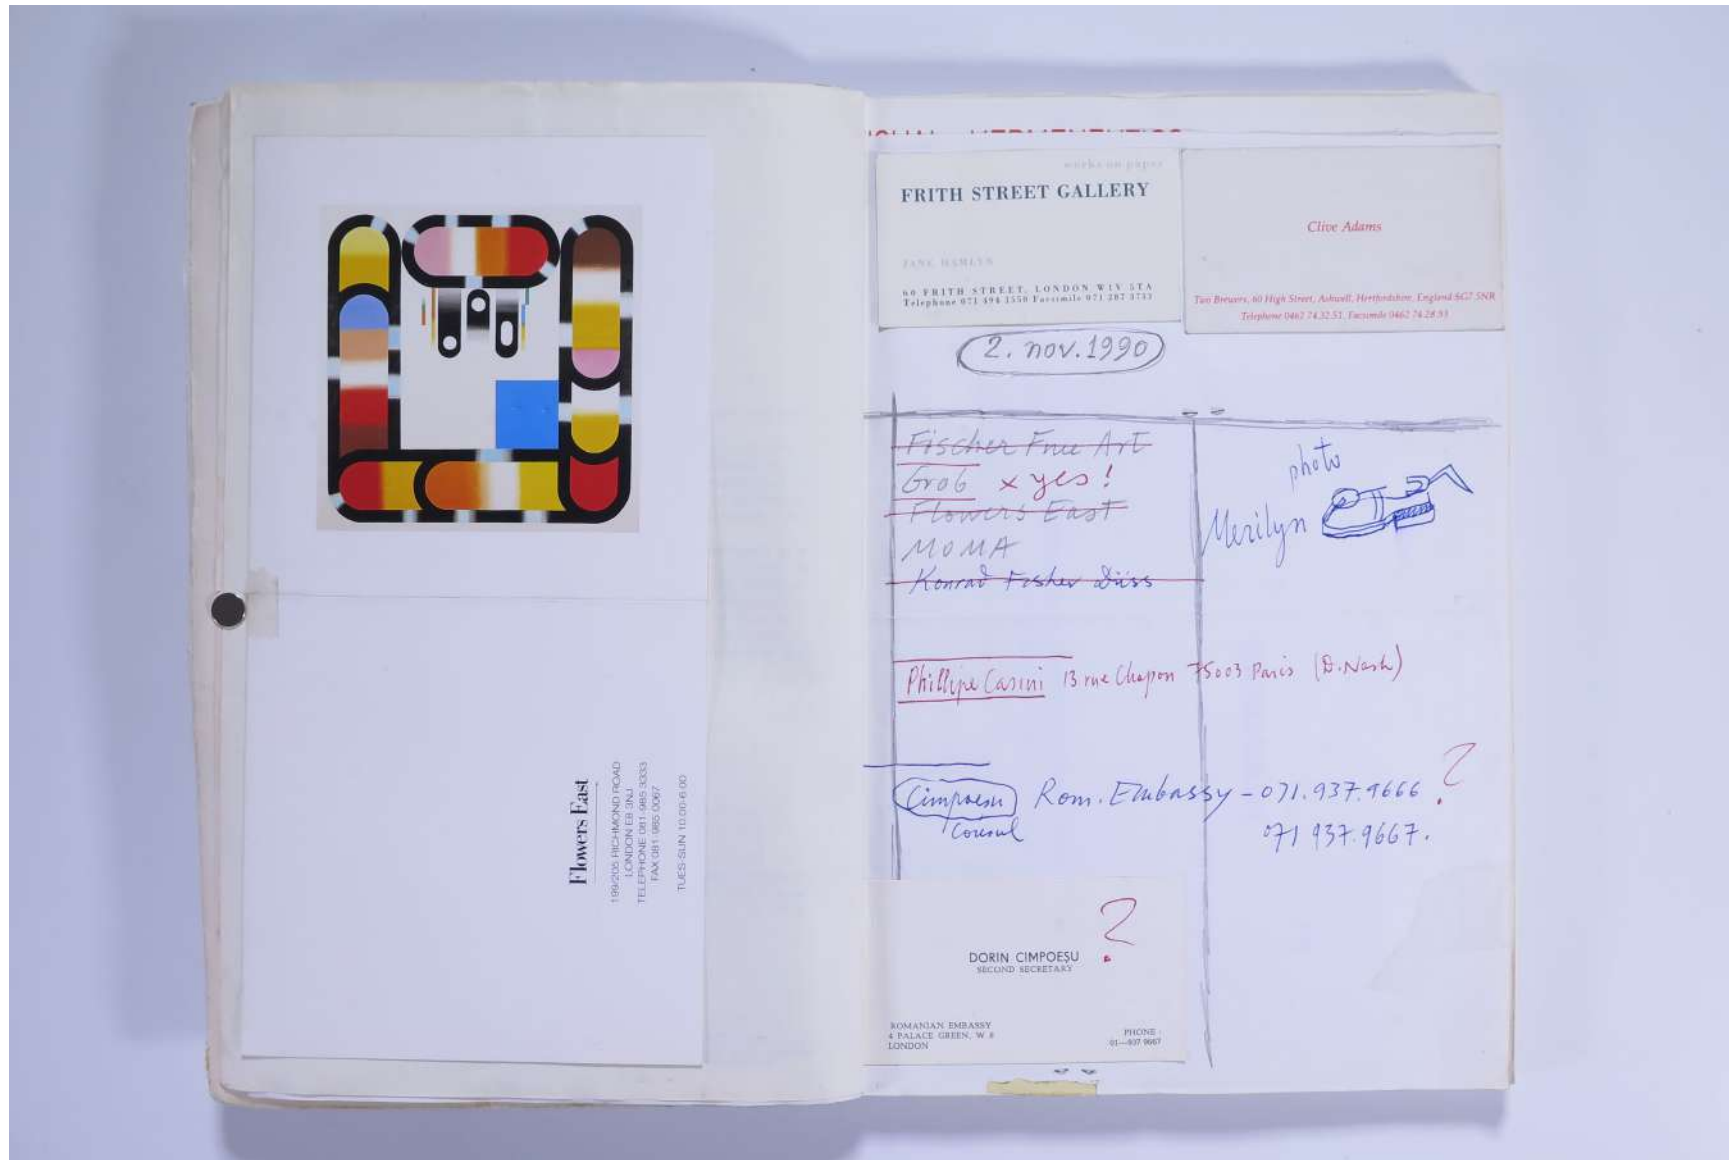 Flowers East
199/205 RICHMOND ROAD
LONDON E8 3NJ
TELEPHONE 081-985 3333
FAX 081 985 0067
TUES-SUN 10.00-6.00
works on paper
FRITH STREET GALLERY
JANE HAMLYN
60 FRITH STREET, LONDON W1V 5TA
Telephone 071 494 1550 Facsimile 071 287 3733
Clive Adams
Two Brewers, 60 High Street, Ashwell, Hertfordshire, England SG7 5NR
Telephone 0462 74.32.51, Facsimile 0462 74.28.93
2. nov. 1990
Fischer Fine Art
Grob x yes!
Flowers East
MOMA
Konrad Fisher Düss
photo
Merilyn
Phillipe Casini 13 rue Chapon 75003 Paris (D. Nash)
Cimpoesu Rom. Embassy - 071.937.9666 ?
Consul 071 937.9667.
?
DORIN CIMPOEȘU
SECOND SECRETARY
ROMANIAN EMBASSY
4 PALACE GREEN, W 8
LONDON
PHONE:
01—937 9667